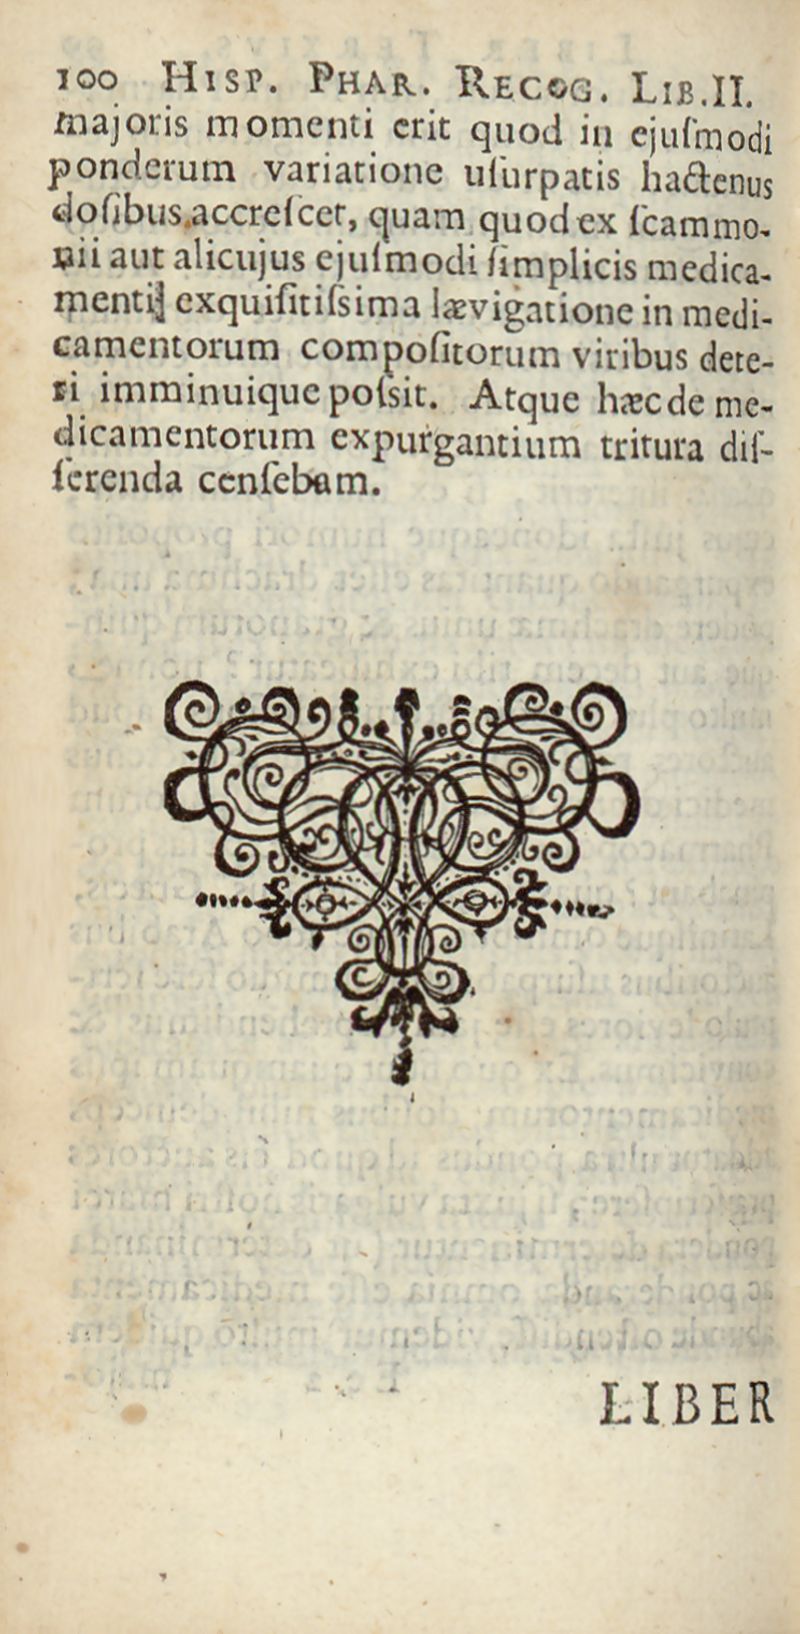 100 HISP. PHAR. RECOG. LIB.II.
majoris momenti erit quod in ejuſmodi
ponderum variatione uſurpatis hactenus
doſibus accreſcet, quam quod ex ſcammo-
nii aut alicujus ejuſmodi ſimplicis medica-
menti exquiſitiſsima lævigatione in medi-
camentorum compoſitorum viribus dete-
ri imminuique poſsit. Atque hæc de me-
dicamentorum expurgantium tritura diſ-
ſerenda cenſebam.
LIBER